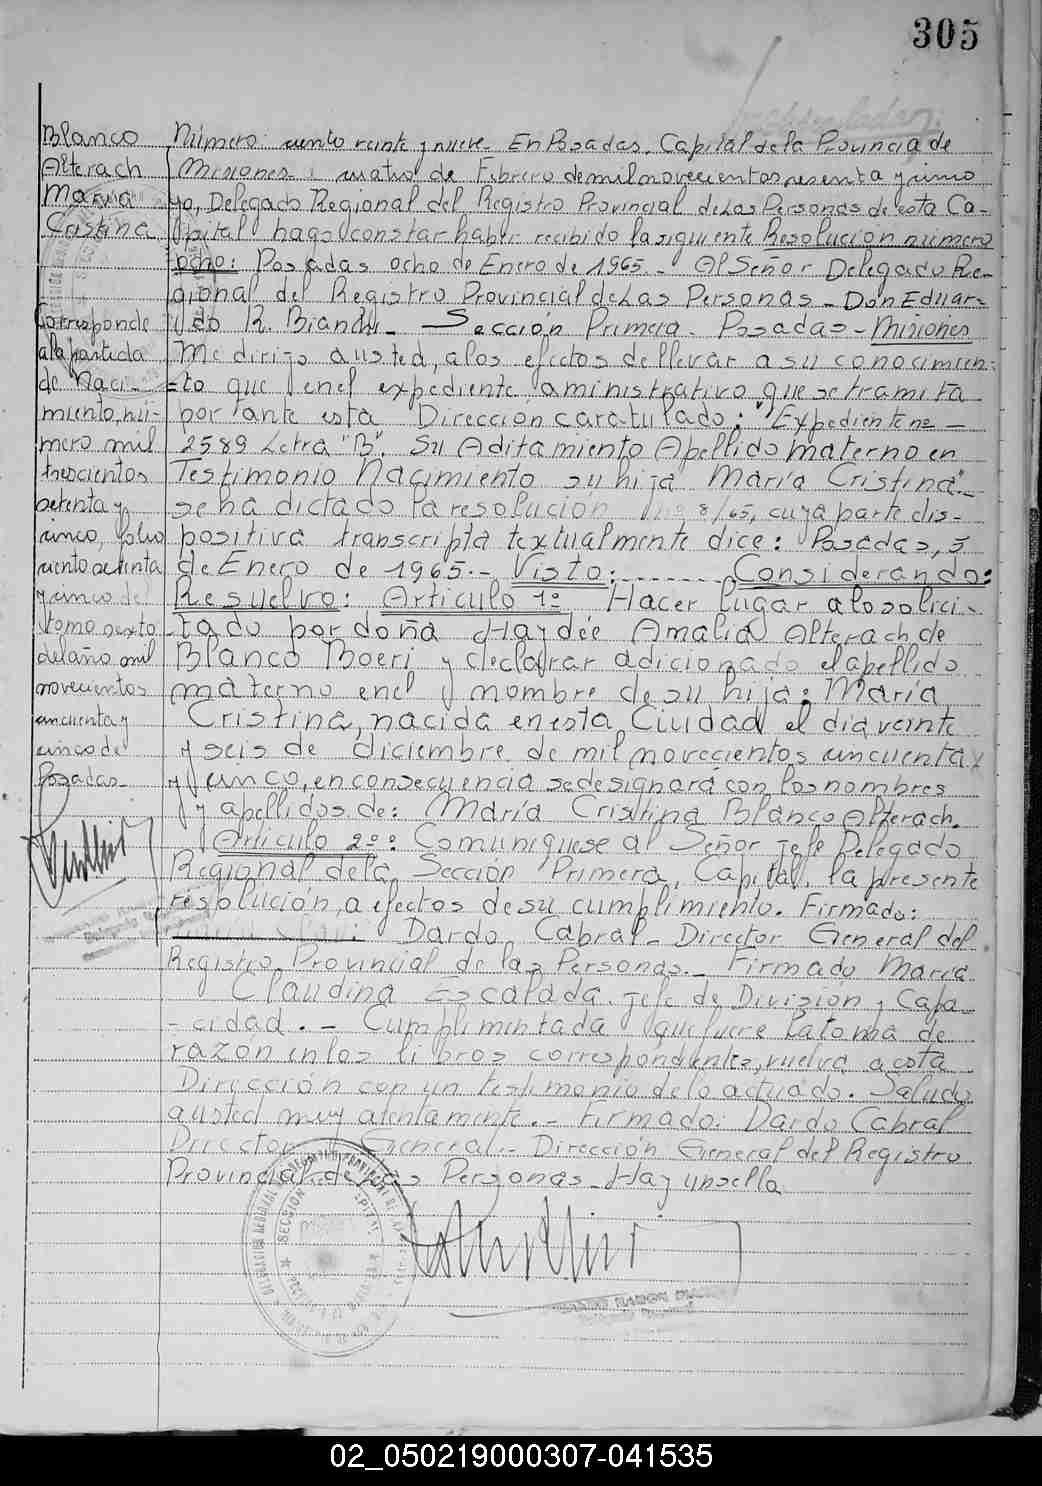 305
Blanco
Alterach
María
Cristina
Corresponde
a la partida
de Naci-
miento, nú-
mero mil
trescientos
setenta y
cinco, folio
ciento ochenta
y cinco del
tomo sexto
del año mil
novecientos
cincuenta y
cinco de
Posadas-
Número: ciento veinte y nueve- En Posadas, Capital de la Provincia de
Misiones- a cuatro de Febrero de mil novecientos sesenta y cinco
yo, Delegado Regional del Registro Provincial de las Personas de esta Ca-
pital hago constar haber recibido la siguiente Resolución número
ocho: Posadas ocho de Enero de 1965.- Al Señor Delegado Re-
gional del Registro Provincial de Las Personas- Don Eduar-
do R. Bianchi- Sección Primera- Posadas- Misiones
Me dirijo a usted, a los efectos de llevar a su conocimien-
=to que en el expediente aministrativo que se tramita
por ante esta Dirección caratulado: "Expediente nº -
2589 Letra "B". Su Aditamiento Apellido materno en
Testimonio Nacimiento su hija María Cristina".-
se ha dictado la resolución nº 8/65, cuya parte dis-
positiva transcripta textualmente dice: Posadas, 5
de Enero de 1965.- Visto: ....... Considerando:
Resuelvo: Artículo 1º Hacer lugar a lo solici-
-tado por doña Haydée Amalia Alterach de
Blanco Boeri y declarar adicionado el apellido
materno en el nombre de su hija: María
Cristina, nacida en esta Ciudad el dia veinte
y seis de diciembre de mil novecientos cincuenta y
y cinco, en consecuencia se designará con los nombres
y apellidos de: María Cristina Blanco Alterach.
Artículo 2º: Comuníquese al Señor Jefe Delegado
Regional de la Sección Primera, Capital, la presente
resolución, a efectos de su cumplimiento. Firmado:
Dardo Cabral- Director General del
Registro Provincial de las Personas.- Firmado María
Claudina Escalada. Jefe de División y Capa-
-cidad.- Cumplimentada que fuere la toma de
razón en los libros correspondientes, vuelva a esta
Dirección con un testimonio de lo actuado. Saludo
a usted muy atentamente.- Firmado: Dardo Cabral
Director General.- Dirección General del Registro
Provincial de las Personas- Hay un sello
02_050219000307-041535